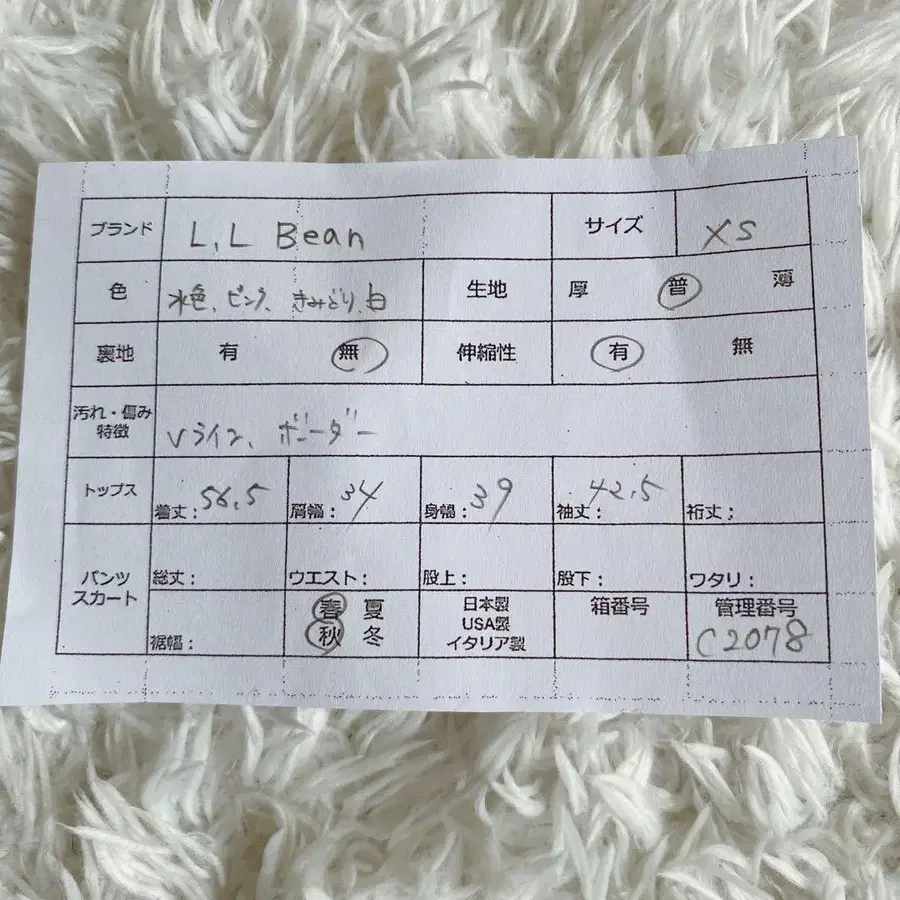 ブランド L.L Bean サイズ XS
色 水色、ピンク、きみどり、白 生地 厚 普 薄
裏地 有 無 伸縮性 有 無
汚れ・傷み
特徴 Vライン、ボーダー
トップス 着丈：56.5 肩幅：34 身幅：39 袖丈：42.5 裄丈：
パンツ
スカート
総丈： ウエスト： 股上： 股下： ワタリ：
裾幅：
春 夏
秋 冬
日本製
USA製
イタリア製
箱番号
管理番号
C2078